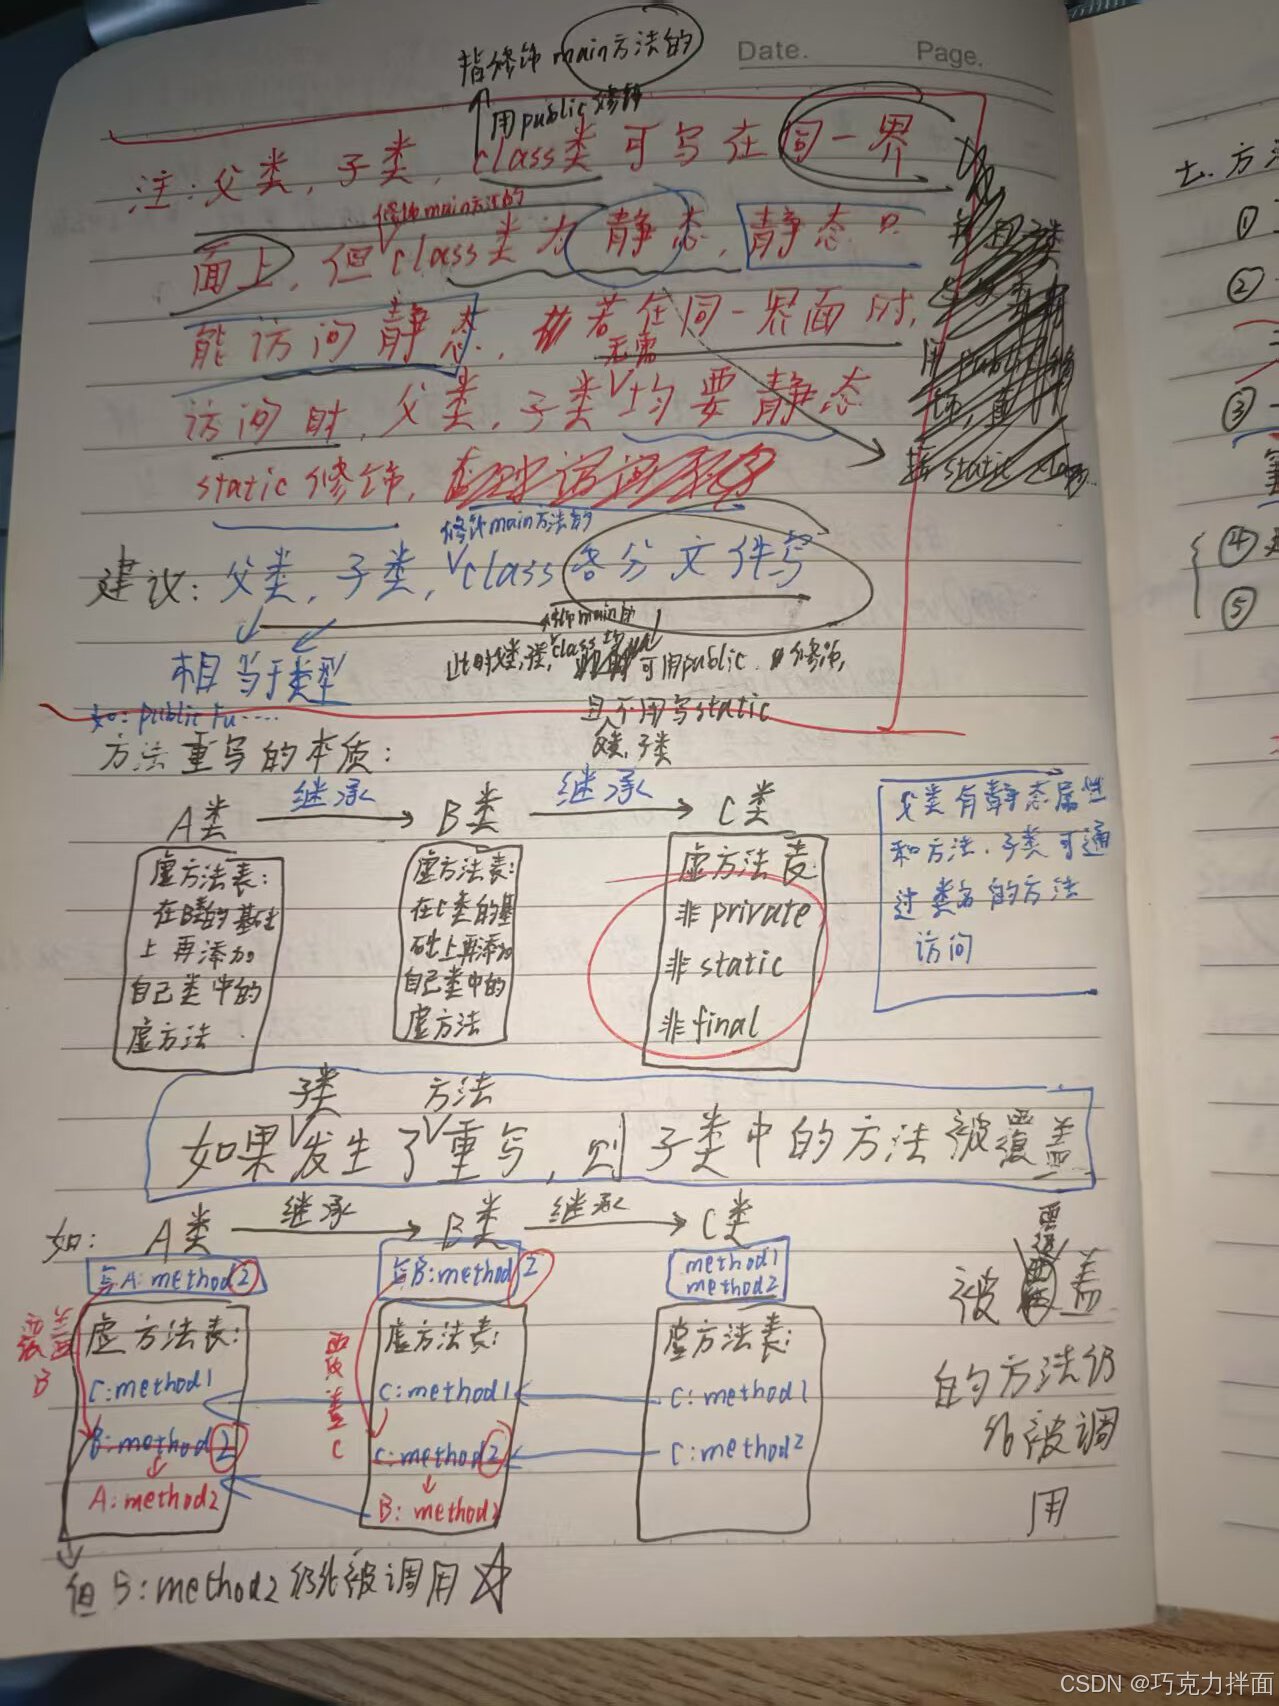 Date.
Page.
指修饰main方法的
用public修饰
注:父类,子类,class类可写在同一界
修饰main方法的
面上,但class类为静态,静态只
能访问静态,若在同一界面时,
无需
访问时,父类,子类均要静态
static修饰,
修饰main方法的
建议:父类,子类,class各分文件写
修饰main的
相当于类型
可用public修饰,
如:public Fu……
且不用写static
父类,子类
方法重写的本质:
A类
继承
B类
继承
C类
虚方法表:
在B类的基础
上再添加
自己类中的
虚方法
虚方法表:
在C类的基
础上再添加
自己类中的
虚方法
虚方法表
非private
非static
非final
父类有静态属性
和方法,子类可通
过类名的方法
访问
子类
方法
如果发生了重写,则子类中的方法被覆盖
如:
A类
继承
B类
继承
C类
写A:method2
写B:method2
method1
method2
覆盖
B
虚方法表:
C:method1
B:method2
A:method2
覆盖
C
虚方法表:
C:method1
C:method2
B:method2
虚方法表:
C:method1
C:method2
被覆盖
的方法仍
然被调
用
但B:method2仍然被调用☆
七.方法
①
②
③
④
⑤
CSDN @巧克力拌面